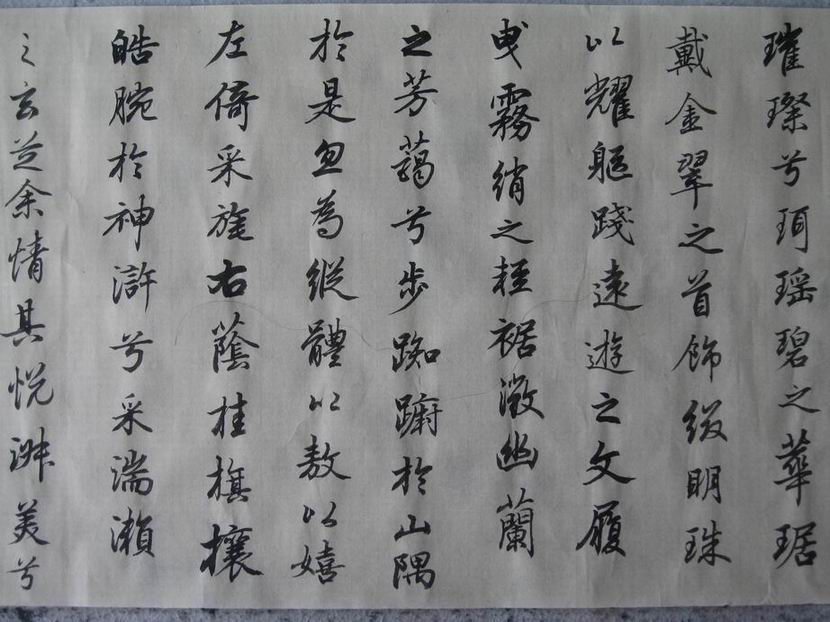 璀璨兮珥瑶碧之華琚
戴金翠之首飾綴明珠
以耀軀踐遠遊之文履
曳霧綃之輕裾微幽蘭
之芳藹兮步踟躕於山隅
於是忽為縱體以敖以嬉
左倚采旄右蔭桂旗攘
皓腕於神滸兮采湍瀨
之玄芝余情其悅淑美兮